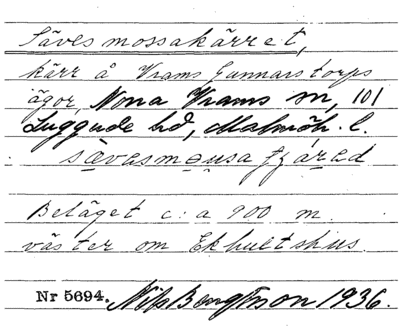 Sävesmossakärret,
kärr å Vrams Gunnarstorps
ägor, Norra Vrams sn, 101
Luggude hd, Malmöh. l.
sævasmousa tjärad
Beläget c:a 900 m.
väster om Ekhultshus.
Nr 5694. Nils Bengtsson 1936.